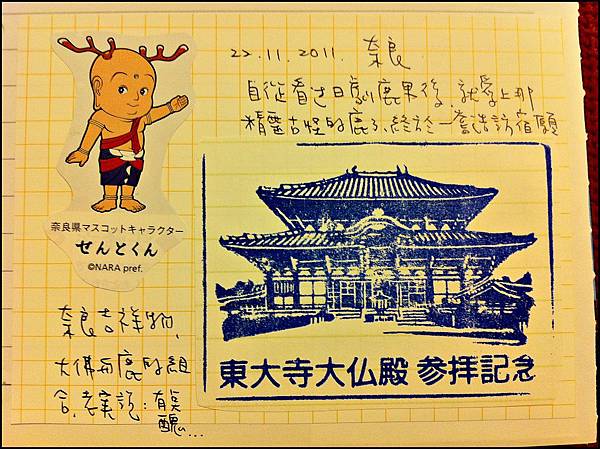 22.11.2011. 奈良
自從看过日劇鹿男後,就愛上那
精靈古怪的鹿,終於一嘗造訪宿願
奈良県マスコットキャラクター
せんとくん
©NARA pref.
奈良吉祥物,
大佛與鹿的組
合,老實說:有
醜...
東大寺大仏殿 参拝記念